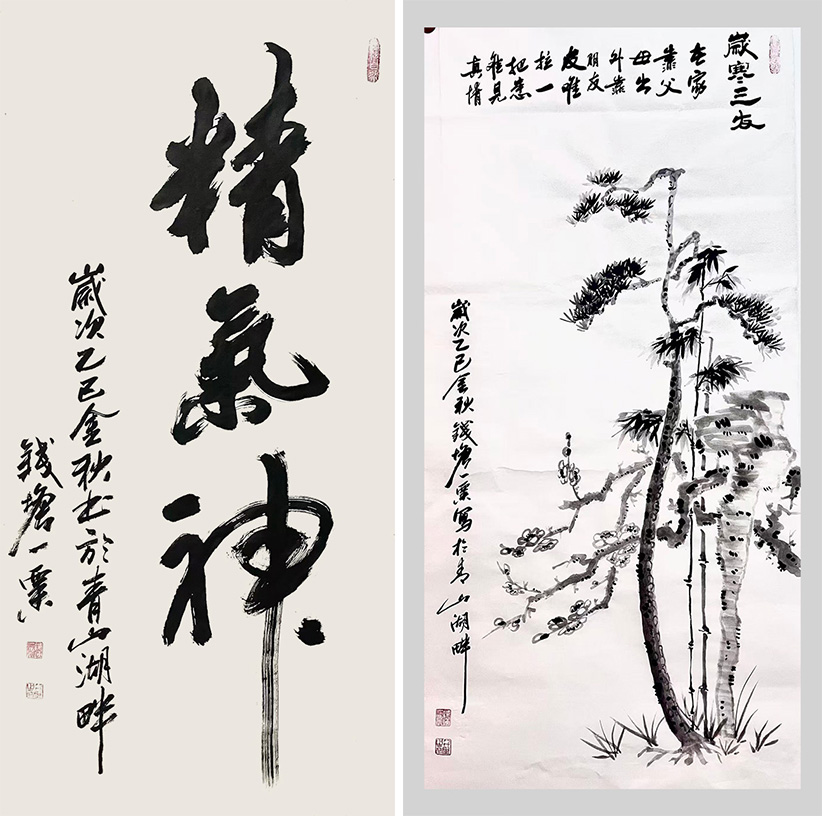 精氣神
歲次乙巳金秋书於青山湖畔
錢塘一粟
歲寒三友
在家
靠父
母出
外靠
朋友
难
拉一
把患
难見
真情
歲次乙巳金秋錢塘一粟寫於青山湖畔